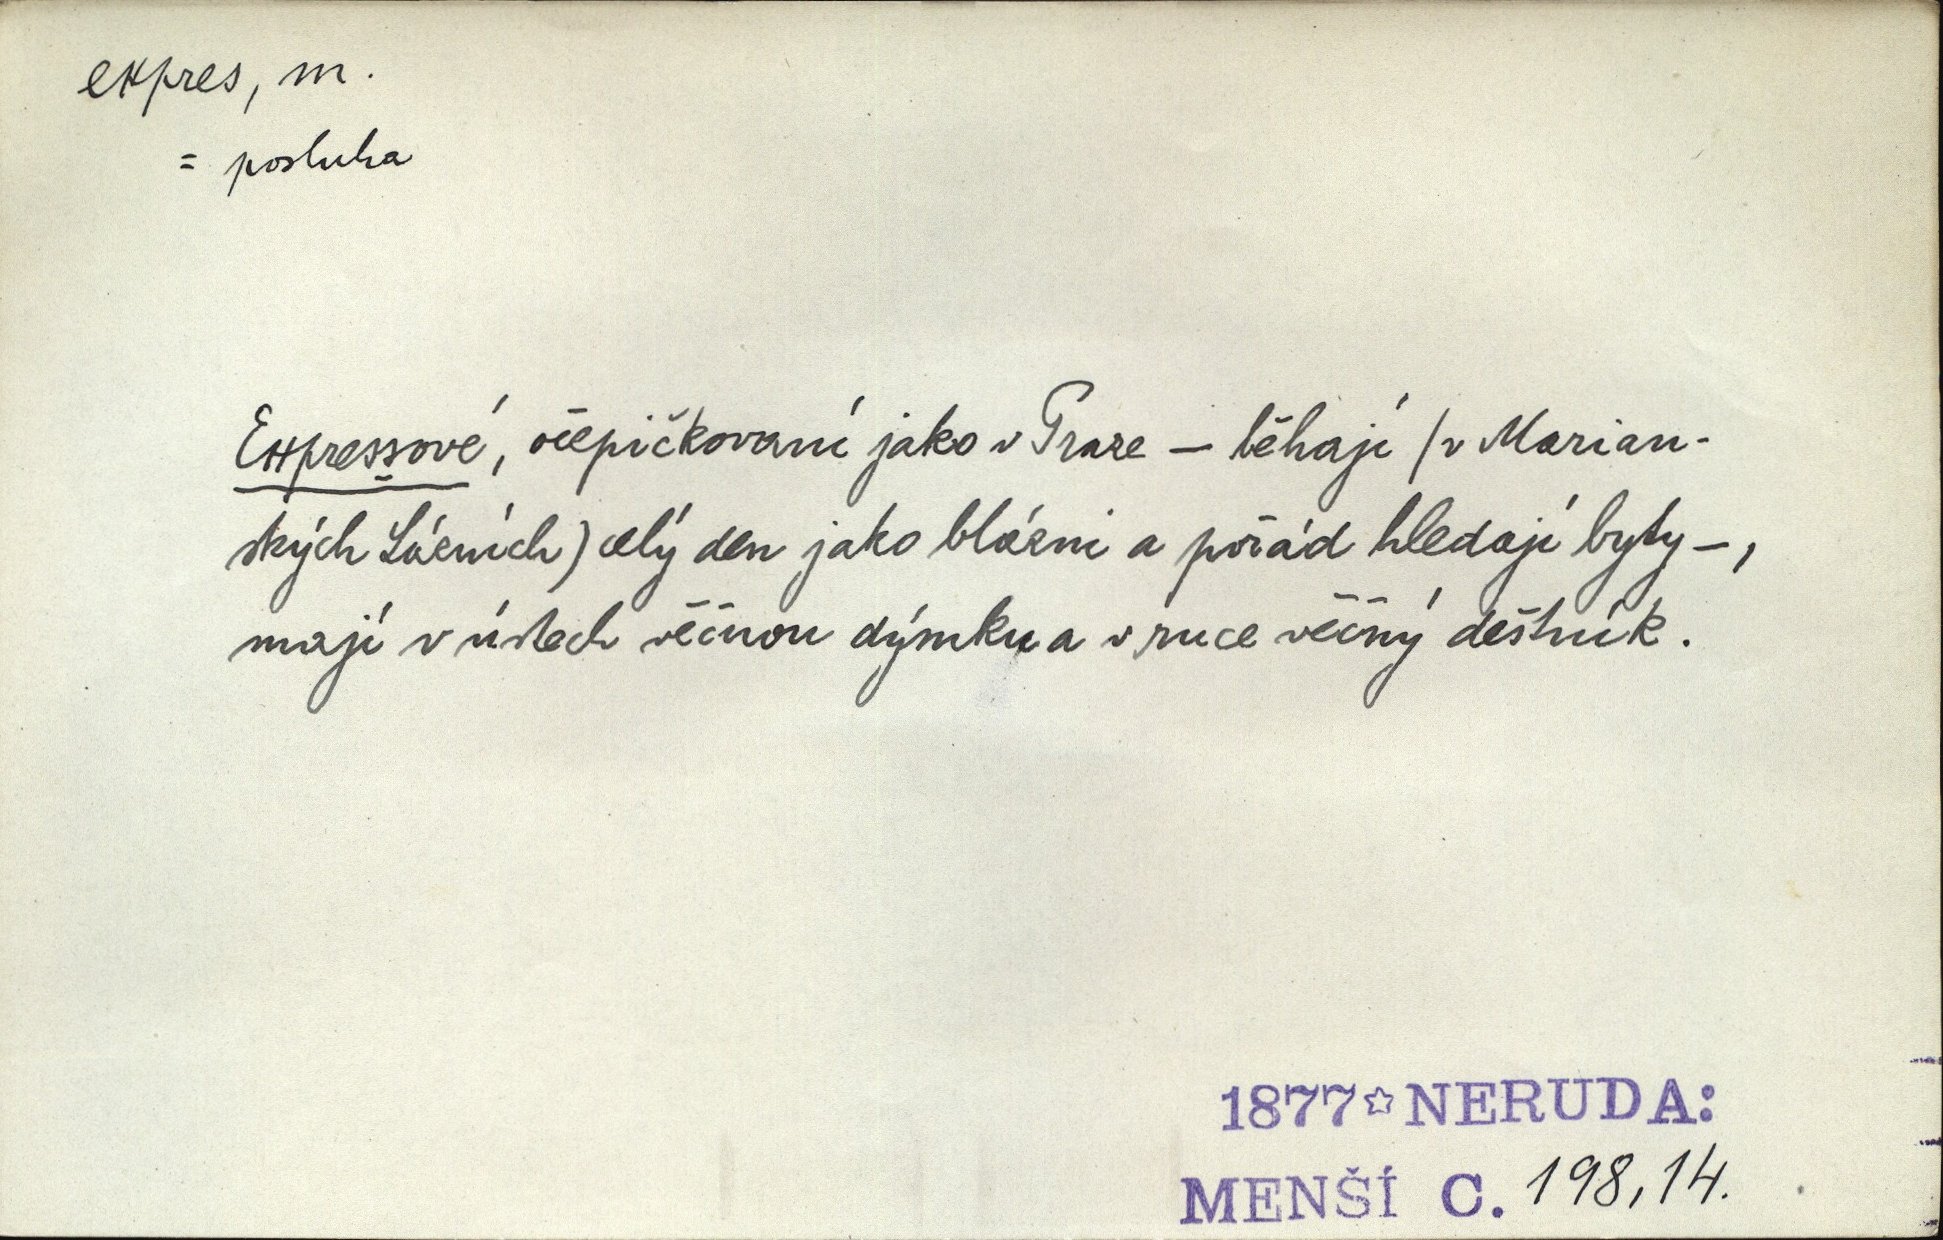 expres, m.
= posluha
Expressové, očepičkovaní jako v Praze – běhají (v Marian-
ských Lázních) celý den jako blázni a pořád hledají byty –,
mají v ústech věčnou dýmku a v ruce věčný deštník.
1877☆NERUDA:
MENŠÍ C. 198,14.